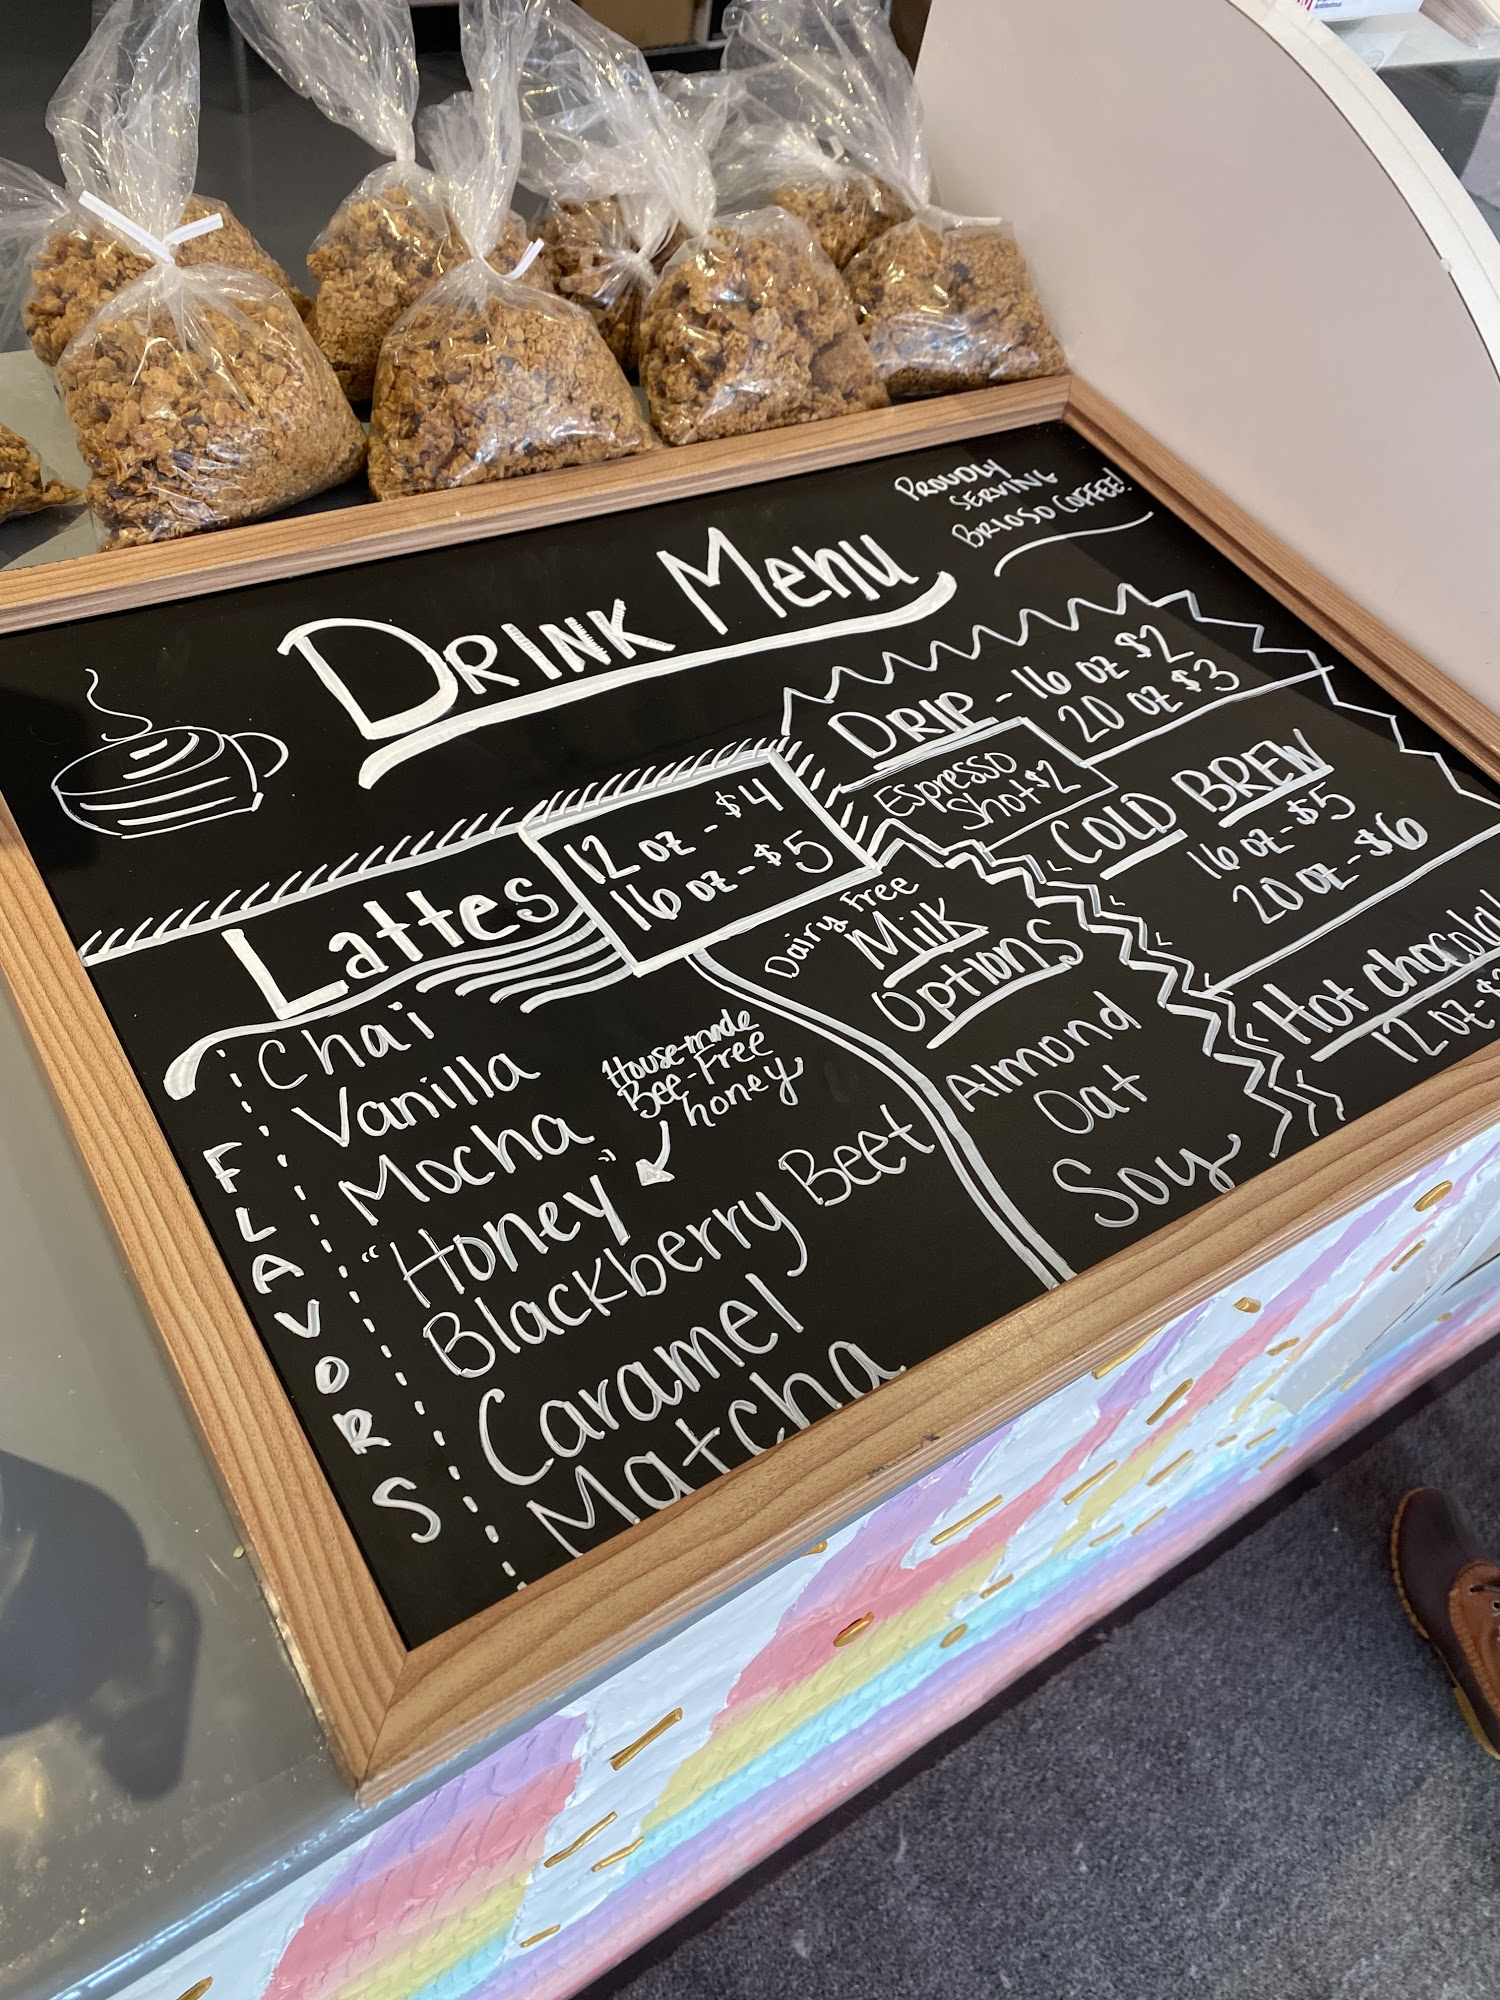 PROUDLY
SERVING
BRIOSO COFFEE!
DRINK Menu
DRIP - 16 oz $2
20 oz $3
Espresso
Shot $2
COLD BREW
16 oz - $5
20 oz - $6
Hot chocolat
12 oz - $
Lattes
12 oz - $4
16 oz - $5
FLAVORS
Chai
Vanilla
Mocha
"Honey"
House-made
Bee-Free
honey
Blackberry Beet
Caramel
Matcha
Dairy Free
Milk
Options
Almond
Oat
Soy